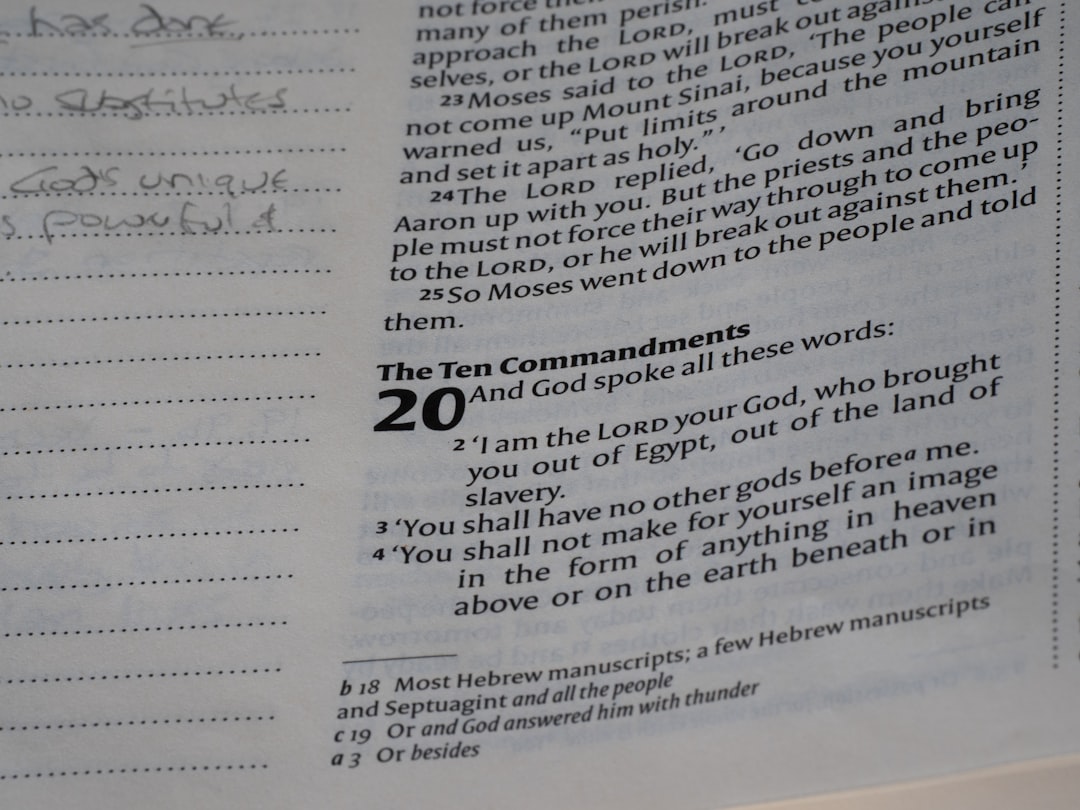 has done,
no substitutes
God's unique
powerful &
not force
many of them perish.
approach the LORD, must
selves, or the LORD will break out against
23 Moses said to the LORD, ‘The people can
not come up Mount Sinai, because you yourself
warned us, “Put limits around the mountain
and set it apart as holy.” ’
24 The LORD replied, ‘Go down and bring
Aaron up with you. But the priests and the peo-
ple must not force their way through to come up
to the LORD, or he will break out against them.’
25 So Moses went down to the people and told
them.
The Ten Commandments
20 And God spoke all these words:
2 ‘I am the LORD your God, who brought
you out of Egypt, out of the land of
slavery.
3 ‘You shall have no other gods before a me.
4 ‘You shall not make for yourself an image
in the form of anything in heaven
above or on the earth beneath or in
b 18 Most Hebrew manuscripts; a few Hebrew manuscripts
and Septuagint and all the people
c 19 Or and God answered him with thunder
a 3 Or besides